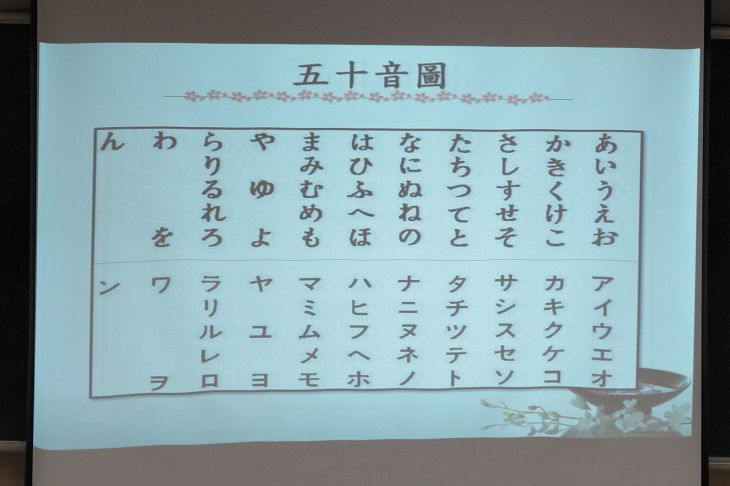 五十音圖
あいうえお
かきくけこ
さしすせそ
たちつてと
なにぬねの
はひふへほ
まみむめも
や ゆ よ
らりるれろ
わ を
ん
アイウエオ
カキクケコ
サシスセソ
タチツテト
ナニヌネノ
ハヒフヘホ
マミムメモ
ヤ ユ ヨ
ラリルレロ
ワ ヲ
ン